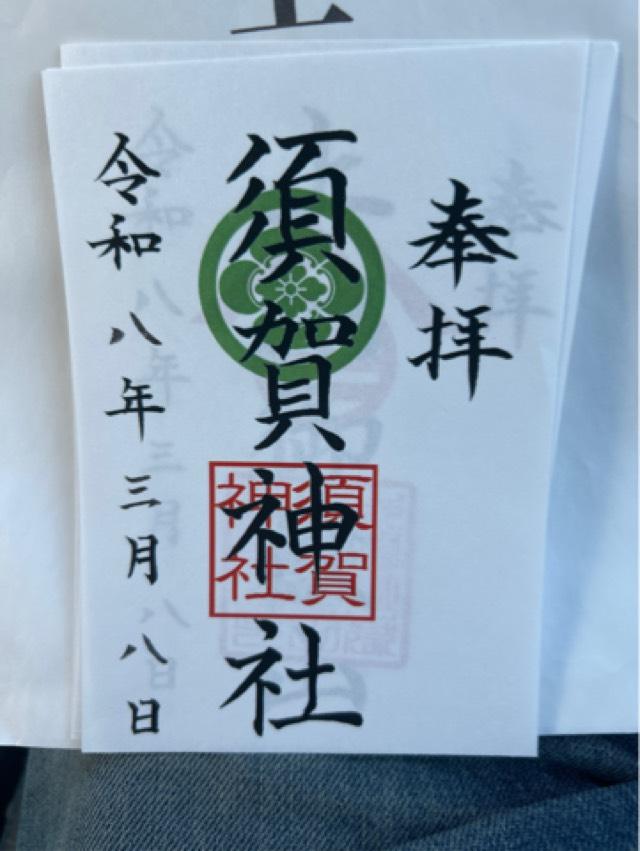 奉拝
須賀神社
須賀
神社
令和八年三月八日